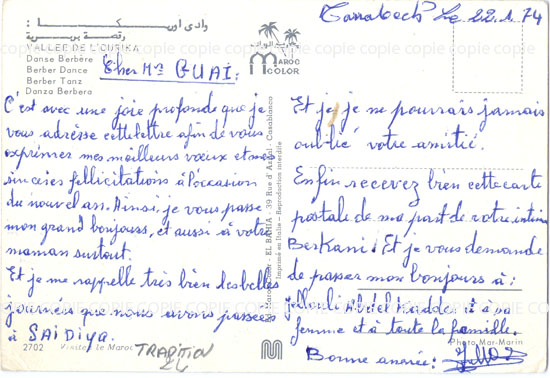 وادي اوريكا :
رقصة بربرية
VALLEE DE L'OURIKA
Danse Berbère
Berber Dance
Berber Tanz
Danza Berbera
MAROC
COLOR
Marrakech Le 22.1.74
Cher Mr GUAI:
C'est avec une joie profonde que je
vous adresse cette lettre afin de vous
exprimer mes meilleurs vœux et mes
sincères fellicitations à l'occasion
du nouvel an. Ainsi, je vous passe
mon grand bonjours, et aussi à votre
maman surtout.
Et je me rappelle très bien les belles
journées que nous avons passées
à SAIDiya.
2702 Visitez Le Maroc
TRADITION
EL BAHIA - 39 Rue d'Azilal - Casablanca
Imprimé en Italie - Reproduction interdite
Et je je ne pourrais jamais
oublié votre amitié.
Enfin recevez bien cette carte
postale de ma part de votre intime
Berkani. Et je vous demande
de passer mon bonjours à:
Jellouli Abdel Kadder et à sa
femme et à toute la famille.
Photo Mar-Marin
Bonne année:
COPIE COPIE COPIE COPIE COPIE